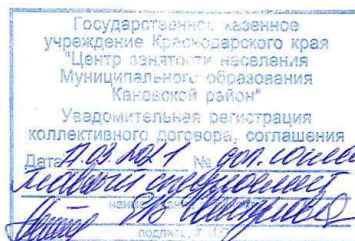 Государственное казенное
учреждение Краснодарского края
"Центр занятости населения
Муниципального образования
Каневской район"
Уведомительная регистрация
коллективного договора, соглашения
Дата 17.03.2021 № доп. соглаш
Главный специалист
подпись